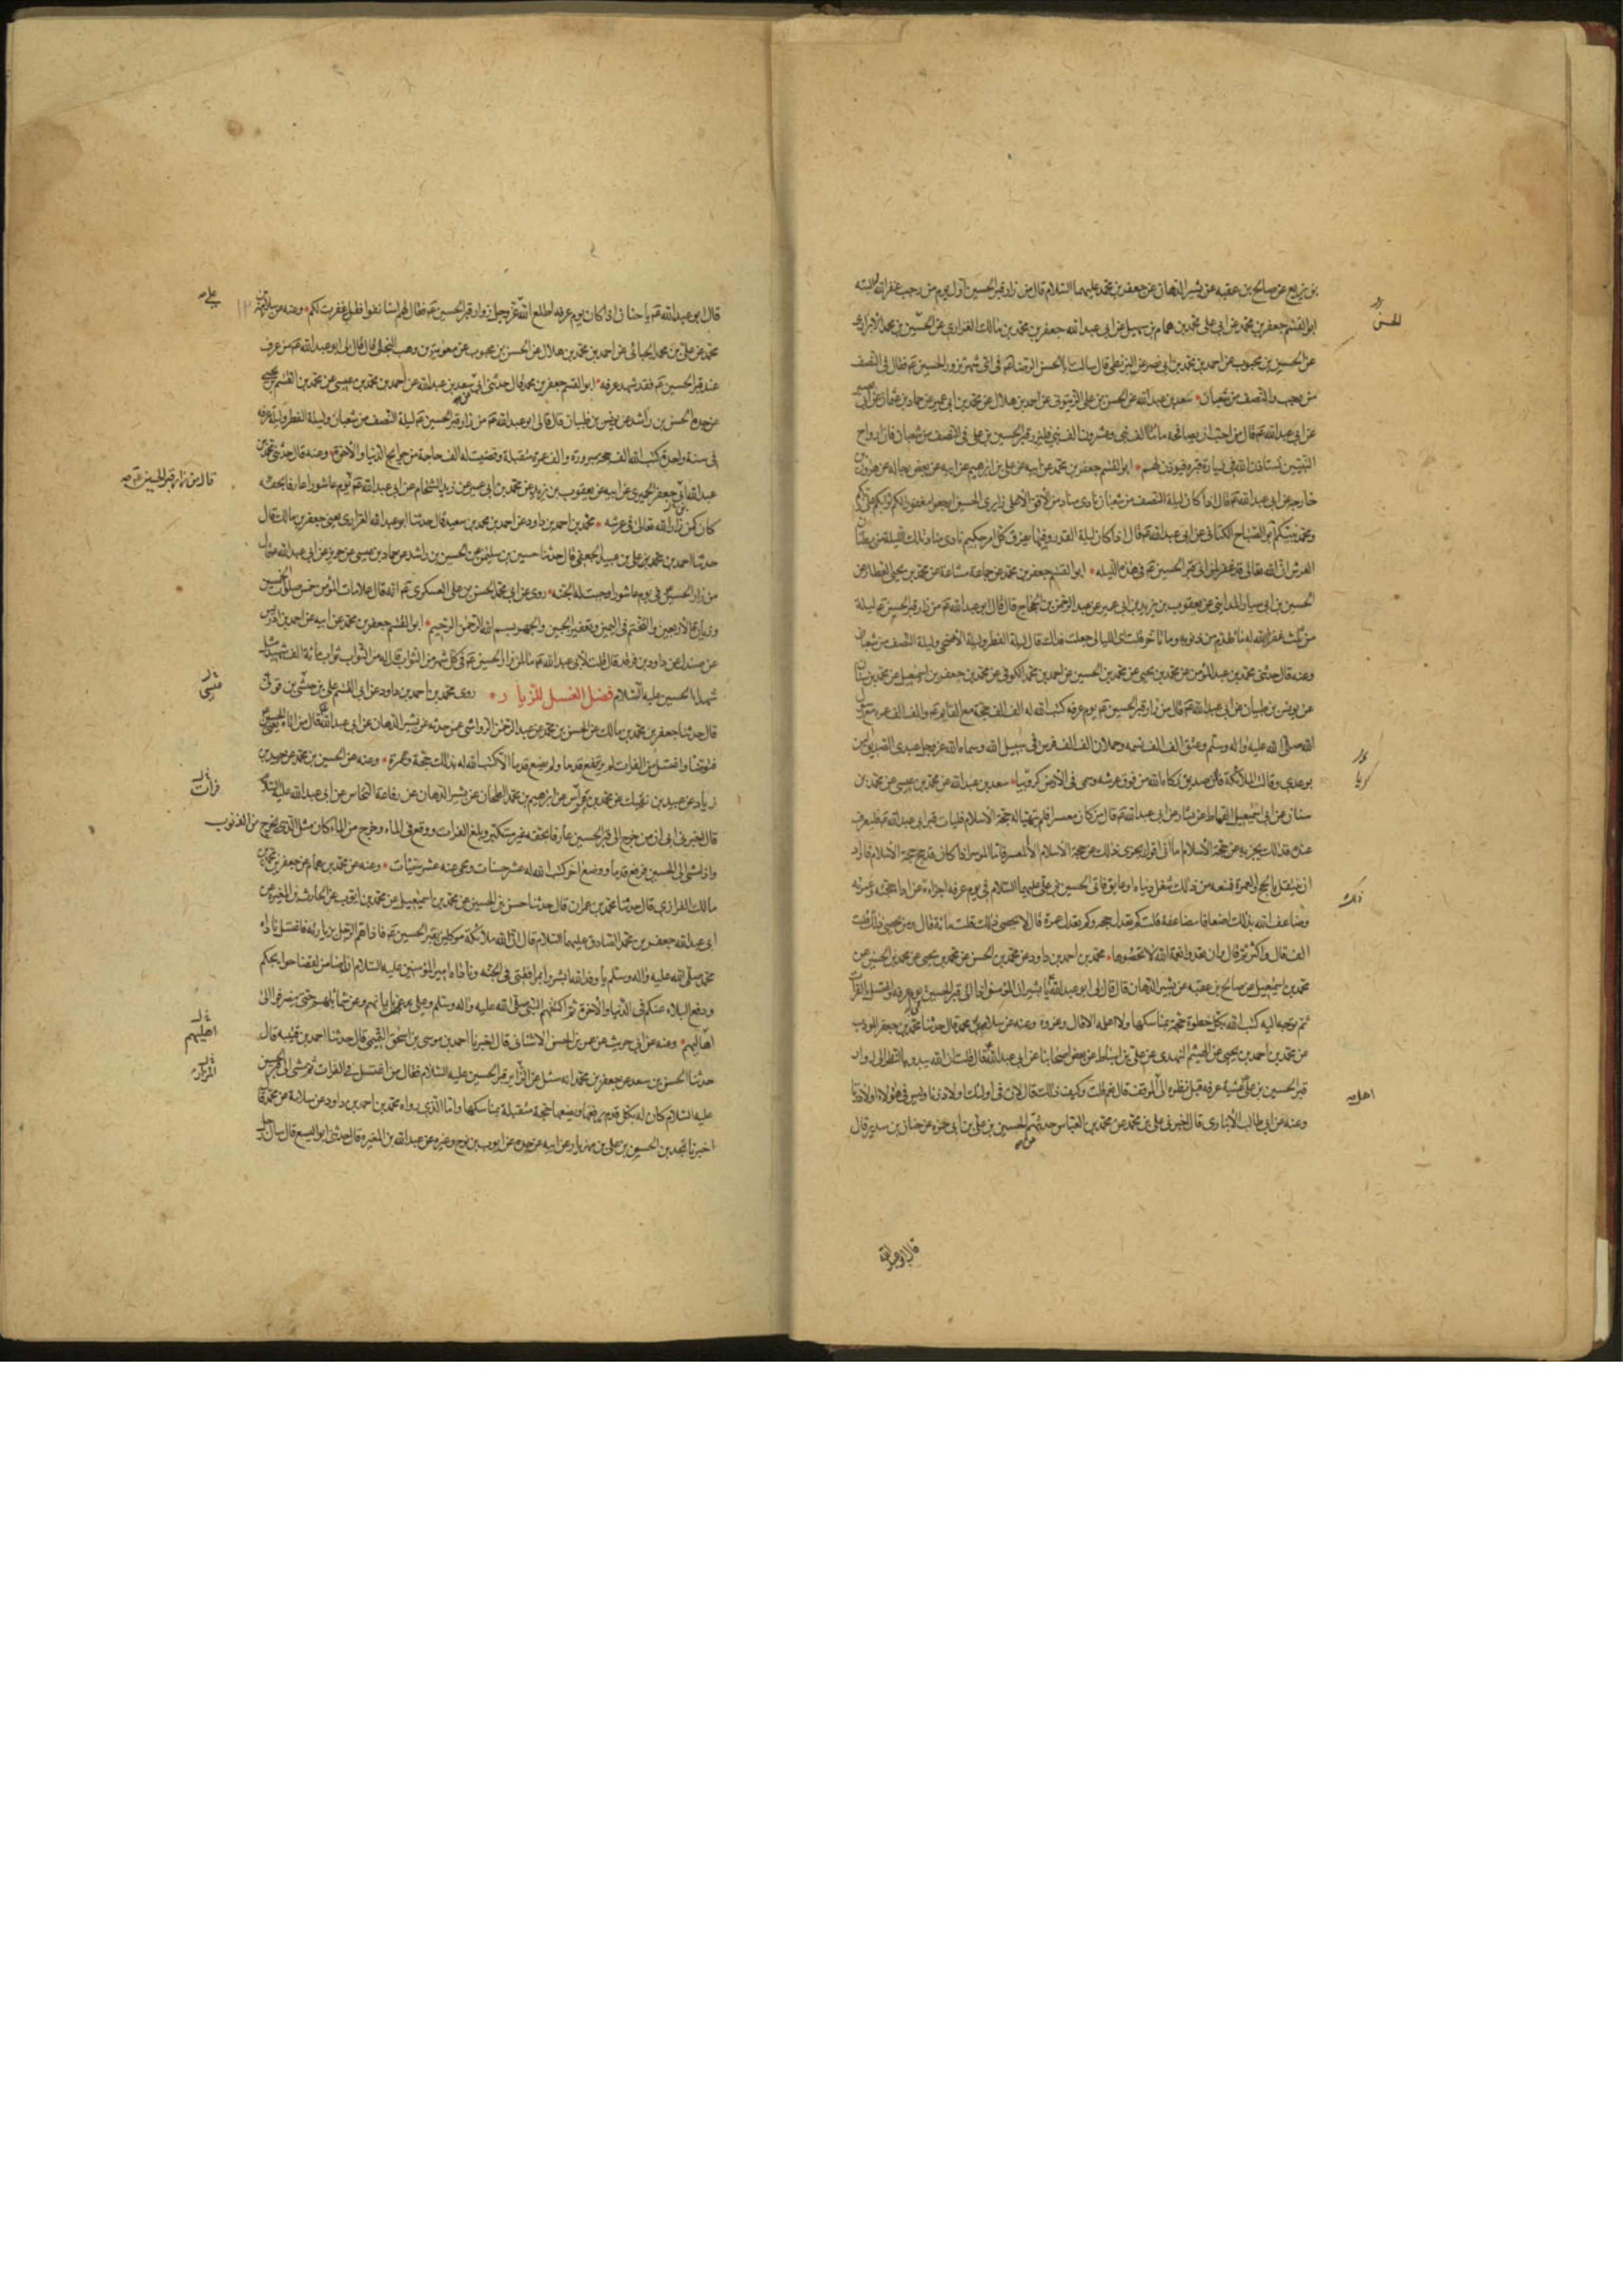 بن بزيع عن صالح بن عقبه عن بشير الدهان عن جعفر بن محمد عليهما السلام قال من زار قبر الحسين اول يوم من رجب غفر الله له البته
ابو القسم جعفر بن محمد عن ابي علي محمد بن همام بن سهيل عن ابي عبد الله جعفر بن محمد بن مالك الفزاري عن الحسن بن محمد الابزاري
عن الحسن بن محبوب عن احمد بن محمد بن ابي نصر عن البزنطي قال سالت ابا الحسن الرضا في اي شهر تزور الحسين عم فقال في النصف
من رجب والنصف من شعبان سعد بن عبد الله عن الحسن بن علي الزيتوني عن احمد بن هلال عن محمد بن ابي عمير عن حماد بن عثمان عن ابي بصير
عن ابي عبد الله عم قال من احب ان يصافحه مائتا الف نبي وعشرون الف نبي فليزر قبر الحسين بن علي في النصف من شعبان فان ارواح
النبيين تستاذن الله في زيارة قبره فيوذن لهم ابو القسم جعفر بن محمد عن ابيه عن علي بن ابرهيم عن ابيه عن بعض رجاله عن هرون بن
خارجه عن ابي عبد الله عم قال اذا كان ليلة النصف من شعبان نادى مناد من الافق الاعلى زايري الحسين ارجعوا مغفورا لكم ثوابكم على ربكم
ومحمد نبيكم ابو الصباح الكناني عن ابي عبد الله عم قال اذا كان ليلة القدر وفيها يفرق كل امر حكيم نادى مناد تلك الليلة من بطنان
العرش ان الله تعالى قد غفر لمن اتى قبر الحسين عم في هذه الليله ابو القسم جعفر بن محمد عن جماعة مشاعة عن محمد بن يحيى العطار عن
الحسين بن ابي سيار المدايني عن يعقوب بن يزيد بن ابي عمير عن عبد الرحمن بن الحجاج قال قال ابو عبد الله عم من زار قبر الحسين عم ليلة
من ثلث غفر الله له ما تقدم من ذنوبه وما تاخر قلت اي الليالي جعلت فداك قال ليلة الفطر وليلة الاضحى وليلة النصف من شعبان
وعنه قال حدثني محمد بن عبد المؤمن عن محمد بن يحيى عن محمد بن الحسين عن احمد بن محمد الكوفي عن محمد بن جعفر بن اسمعيل عن محمد بن سنان
عن يونس بن ظبيان عن ابي عبد الله عم قال من زار قبر الحسين عم يوم عرفه كتب الله له الف الف حجة مع القايم عم والف الف عمره مع رسول
الله صلى الله عليه واله وسلم وعتق الف الف نسمه وحملان الف الف فرس في سبيل الله وسماه الله عز وجل عبدي الصديق امن
بوعدي وقالت الملائكة فلان صديق زكاه الله من فوق عرشه وسمي في الارض كروبيا سعد بن عبد الله عن محمد بن عيسى عن محمد بن
سنان عن ابي اسمعيل القماط عن بشار عن ابي عبد الله عم قال من كان معسرا فلم يتهيا له حجة الاسلام فليات قبر ابي عبد الله عم فليعرف
عنده فذلك يجزيه عن حجة الاسلام اما اني لا اقول يجزي ذلك عن حجة الاسلام الا لمعسر فاما الموسر اذا كان قد حج حجة الاسلام فاراد
ان يتنفل بالحج والعمرة فمنعه من ذلك شغل دنياه او عايق فاتى الحسين بن علي عليهما السلام في يوم عرفه اجزاه عن اداء حجته وعمرته
وضاعف الله بذلك اضعافا مضاعفة قلت كم تعدل حجه وكم تعدل عمرة قال لا يحصى ذلك قلت مائة قال ومن يحصي ذلك قلت
الف قال واكثر ثم قال وان تعدوا نعمة الله لا تحصوها محمد بن احمد بن داود عن محمد بن الحسن عن محمد بن يحيى عن محمد بن الحسين عن
محمد بن اسمعيل عن صالح بن عقبه عن بشير الدهان قال قال لي ابو عبد الله يا بشير ان المؤمن اذا اتى قبر الحسين يوم عرفه واغتسل بالفرات
ثم توجه اليه كتب الله بكل خطوة حجة بمناسكها ولا اعلمه الا قال وغزوه وعنه عن سلامة بن محمد قال حدثنا محمد بن جعفر المودب
عن محمد بن احمد بن يحيى عن الهيثم النهدي عن علي بن اسباط عن بعض اصحابنا عن ابي عبد الله قال قلت ان الله يبدو بالنظر الى زوار
قبر الحسين بن علي عشية عرفه قبل نظره الى الموقف قال نعم قلت وكيف ذلك قال لان في اولئك اولاد زنا وليس في هؤلاء اولاد زنا
وعنه عن ابي طالب الانباري قال اخبرني علي بن محمد عن محمد بن العباس حدثهم الحسين بن علي بن ابي حمزه عن حنان بن سدير قال
قال ابو عبد الله
الحسن
كروبا
ذلك
اهل
قال ابو عبد الله عم يا حنان اذا كان يوم عرفه اطلع الله عز وجل على زوار قبر الحسين عم فقال لهم استانفوا فقد غفرت لكم وعنه عن سلامة بن
محمد عن علي بن محمد الجبائي عن احمد بن محمد بن هلال عن الحسن بن محبوب عن معوية بن وهب البجلي قال قال لي ابو عبد الله عم من عرف
عند قبر الحسين عم فقد شهد عرفه ابو القسم جعفر بن محمد قال حدثني ابي سعد بن عبد الله عن احمد بن محمد بن عيسى عن محمد بن القسم بن يحيى
عن جده الحسن بن راشد عن يونس بن ظبيان قال قال ابو عبد الله عم من زار قبر الحسين عم ليلة النصف من شعبان وليلة الفطر وليلة عرفه
في سنة واحدة كتب الله له الف حجة مبرورة والف عمرة متقبلة وقضيت له الف حاجة من حوايج الدنيا والاخرة وعنه قال حدثني محمد بن
عبد الله ابي جعفر الحميري عن ابيه عن يعقوب بن يزيد عن محمد بن ابي عمير عن زيد الشحام عن ابي عبد الله عم يوم عاشورا عارفا بحقه
كان كمن زار الله تعالى في عرشه محمد بن احمد بن داود عن احمد بن محمد بن سعيد قال حدثنا ابو عبد الله الفزاري يعني جعفر بن مالك قال
حدثنا احمد بن محمد بن علي بن عبيد الجعفي قال حدثنا حسين بن سليمن عن الحسين بن راشد عن حماد بن عيسى عن حريز عن ابي عبد الله عم قال
من زار الحسين في يوم عاشورا وجبت له الجنه روى عن ابي محمد الحسن بن علي العسكري عم انه قال علامات المؤمن خمس صلوة الخمسين
وزيارة الاربعين والتختم في اليمين وتعفير الجبين والجهر ببسم الله الرحمن الرحيم ابو القسم جعفر بن محمد عن ابيه عن احمد بن ادريس
عن صندل عن داود بن فرقد قال قلت لابي عبد الله عم ما لمن زار الحسين عم في كل شهر من الثواب قال له من الثواب ثواب مائة الف شهيد مثل
شهداء الحسين عليه السلام فضل الغسل للزيارة روى محمد بن احمد بن داود عن ابي القسم علي بن حبشي بن قوني
قال حدثنا جعفر بن محمد بن مالك عن الحسن بن محمد عن عبد الرحمن الرواسي عمن حدثه عن بشير الدهان عن ابي عبد الله قال من اتى الحسين
فتوضا واغتسل من الفرات لم يرفع قدما ولم يضع قدما الا كتب الله له بذلك حجة وعمرة وعنه عن الحسين بن محمد عن حميد بن
زياد عن عبيد بن نهيك عن محمد بن فراس عن ابرهيم بن محمد الطحان عن بشير الدهان عن رفاعة النحاس عن ابي عبد الله عليه السلام
قال اخبرني ابي ان من خرج الى قبر الحسين عارفا بحقه غير مستكبر وبلغ الفرات ووقع في الماء وخرج من الماء كان مثل الذي يخرج من الذنوب
واذا مشى الى الحسين فرفع قدما ووضع اخر كتب الله له عشر حسنات ومحى عنه عشر سيئات وعنه عن محمد بن همام عن جعفر بن محمد بن
مالك الفزاري قال حدثنا محمد بن عمران قال حدثنا حسن بن الحسين عن محمد بن اسمعيل عن محمد بن ايوب عن الحارث بن المغيره عن
ابي عبد الله جعفر بن محمد الصادق عليهما السلام قال ان لله ملائكة موكلين بقبر الحسين عم فاذا هم الرجل بزيارته فاغتسل ناداه
محمد صلى الله عليه واله وسلم يا وفد الله ابشروا بمرافقتي في الجنه وناداه امير المؤمنين عليه السلام انا ضامن لقضا حوايجكم
ودفع البلاء عنكم في الدنيا والاخرة ثم اكتنفهم النبي صلى الله عليه واله وسلم وعلي عم عن ايمانهم وعن شمائلهم حتى ينصرفوا الى
اهاليهم وعنه عن ابي حريث عن عمر بن الحسن الاشناني قال اخبرنا احمد بن موسى بن اسحق التميمي قال حدثنا احمد بن قتيبه قال
حدثنا الحسن بن سعد عن جعفر بن محمد انه سئل عن الزاير قبر الحسين عليه السلام فقال من اغتسل في الفرات ثم مشى الى قبر الحسين
عليه السلام كان له بكل قدم يرفعها ويضعها حجة متقبلة بمناسكها واما الذي رواه محمد بن احمد بن داود عن سلامة عن محمد قال
اخبرنا محمد بن الحسين بن علي بن مهزيار عن ابيه عن جده عن ايوب بن نوح وغيره عن عبد الله بن المغيره قال حدثني ابو اليسع قال سال رجل
علي
قال من زار قبر الحسين عم
فرات
اهليهم